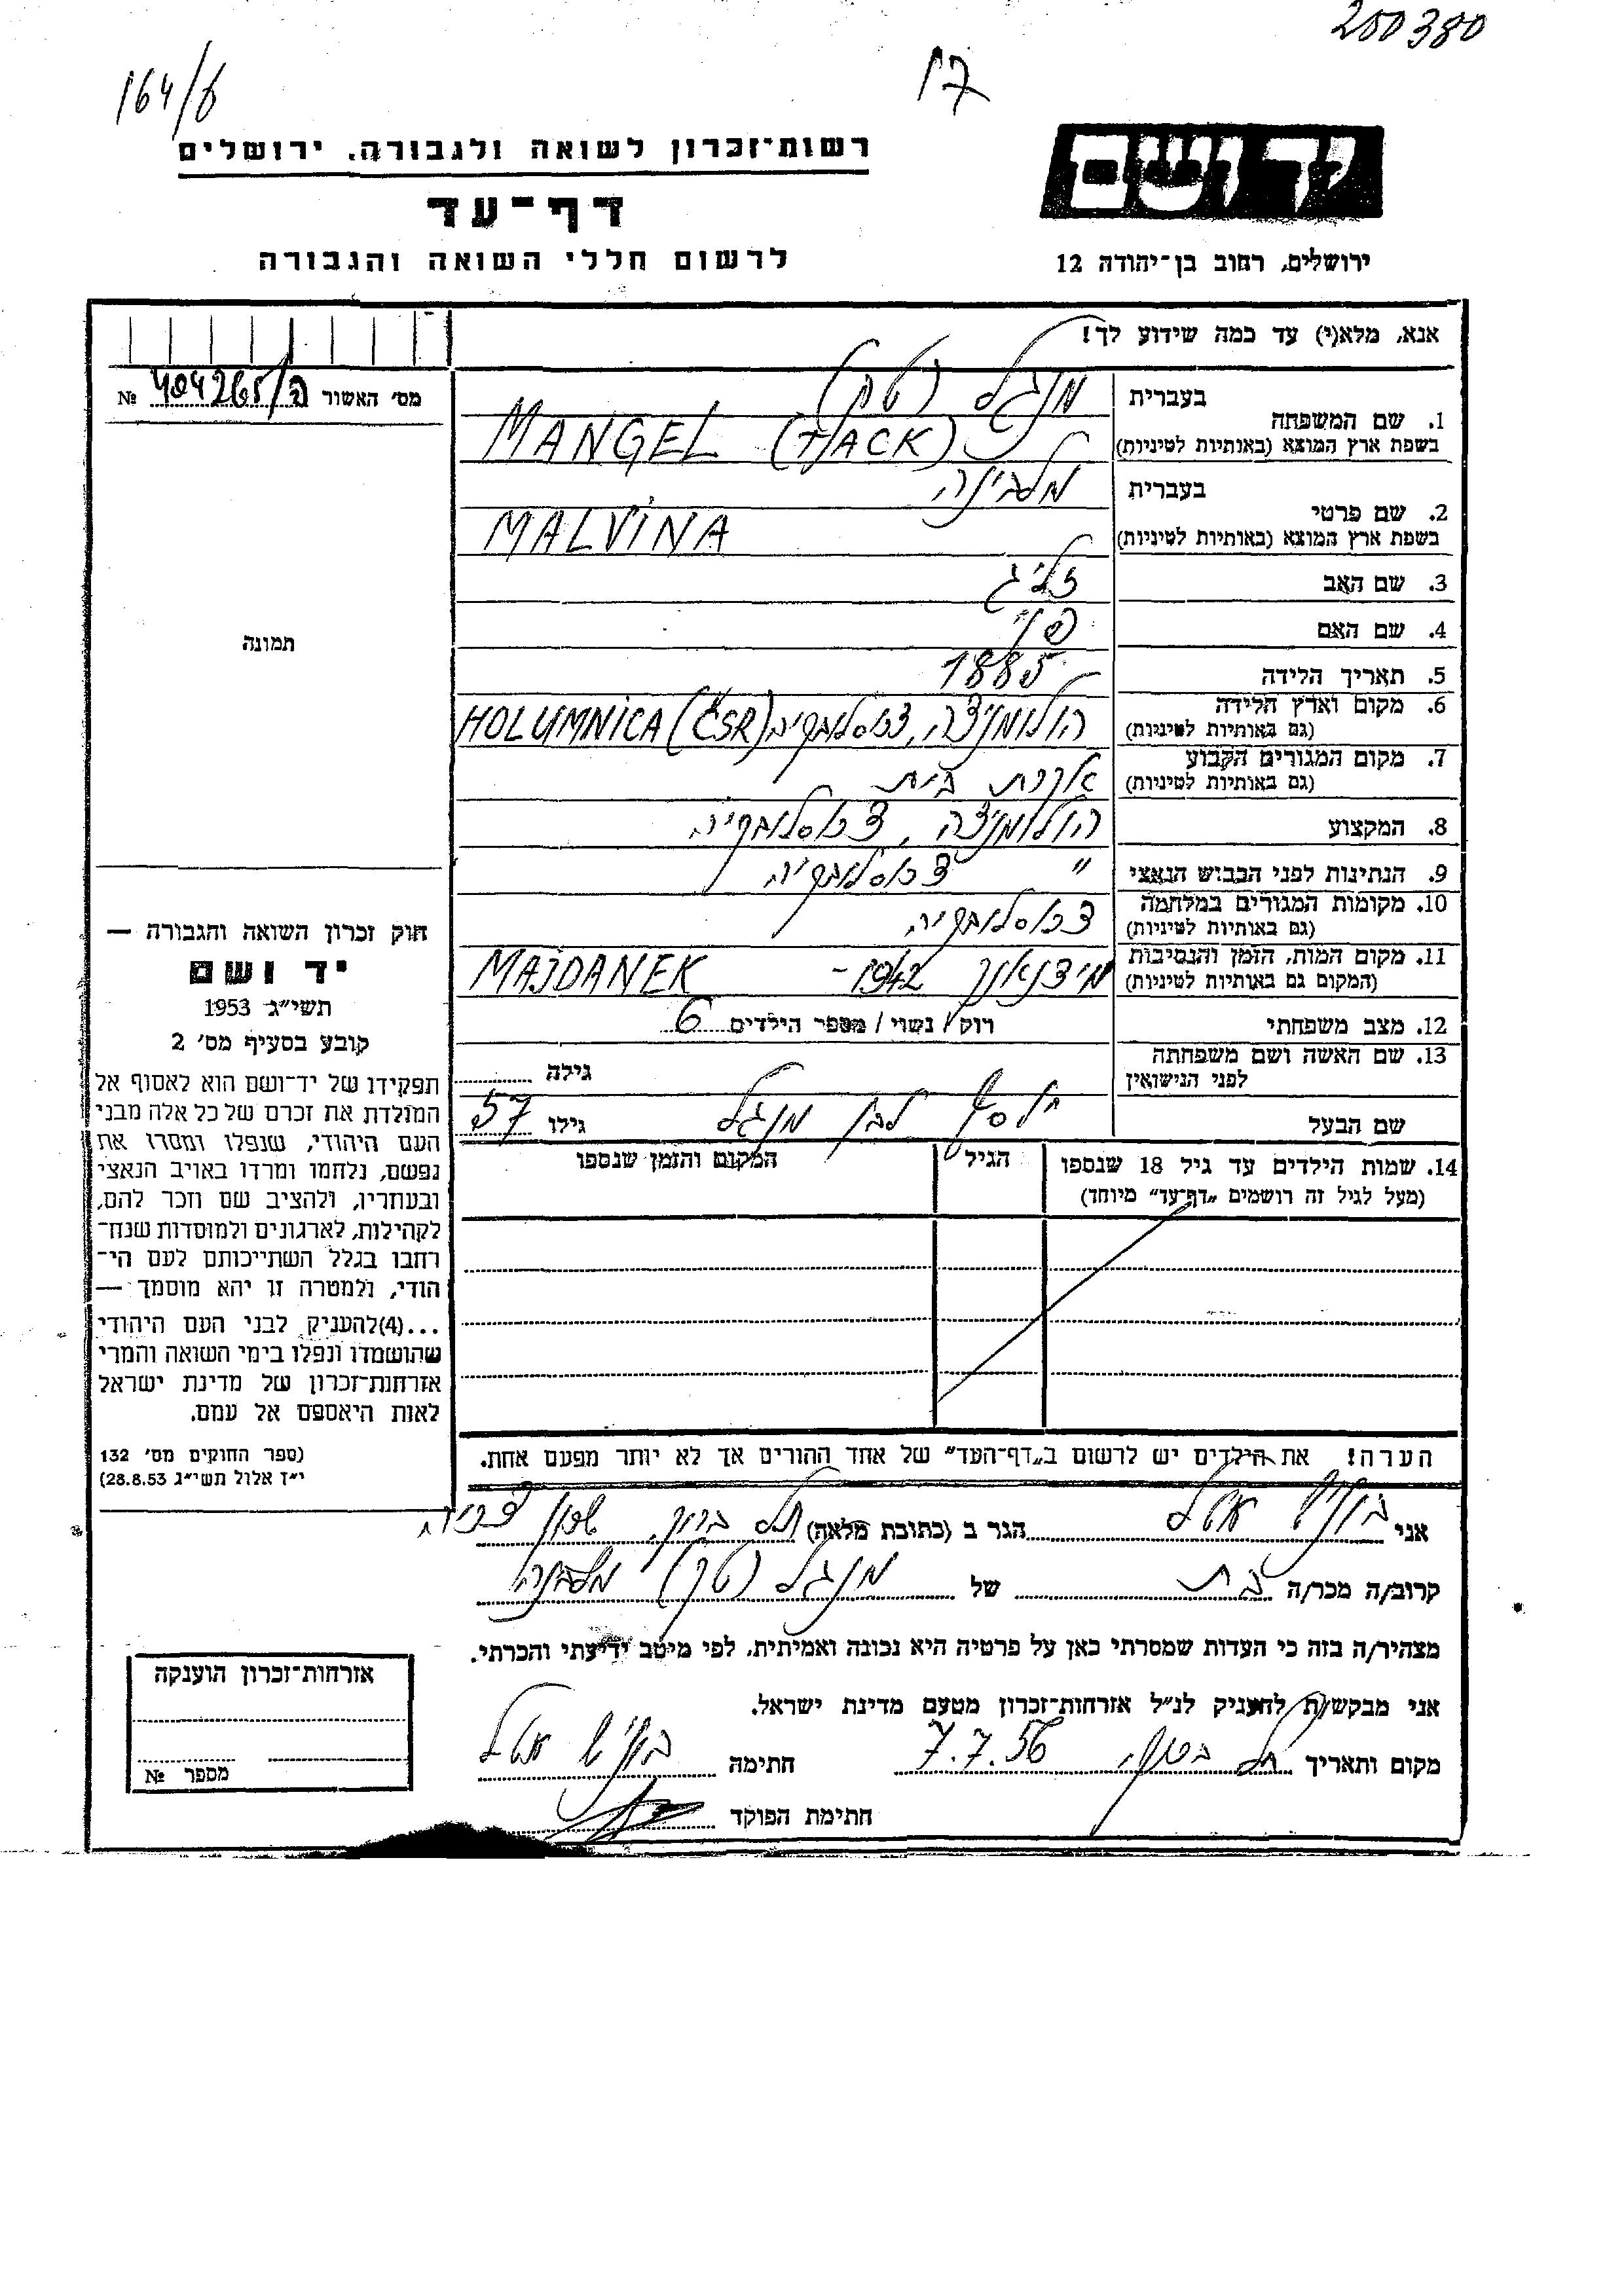 200380
164/6
17
רשות־זכרון לשואה ולגבורה. ירושלים
דף־עד
לרשום חללי השואה והגבורה
יד ושם
ירושלים, רחוב בן־יהודה 12
אנא, מלא(י) עד כמה שידוע לך!
מס׳ האשור 404265/ № 
1. שם המשפחה
בעברית מנגל (טק)
בשפת ארץ המוצא (באותיות לטיניות) MANGEL (TACK)
2. שם פרטי
בעברית מלבינה
בשפת ארץ המוצא (באותיות לטיניות) MALVINA
3. שם האב זליג
4. שם האם
5. תאריך הלידה 1885
6. מקום וארץ הלידה
(גם באותיות לטיניות) הולומניצה, צכוסלובקיה HOLUMNICA (ČSR)
7. מקום המגורים הקבוע
(גם באותיות לטיניות)
8. המקצוע עקרת בית
הולומניצה, צכוסלובקיה
9. הנתינות לפני הכבוש הנאצי " צכוסלובקיה
10. מקומות המגורים במלחמה
(גם באותיות לטיניות) צכוסלובקיה
11. מקום המות, הזמן והנסיבות
(המקום גם באותיות לטיניות) מידנאנק 1942 – MAJDANEK
12. מצב משפחתי רווק / נשוי / מספר הילדים 6
13. שם האשה ושם משפחתה
לפני הנישואין גילה
שם הבעל יוסף מנגל גילו 57
14. שמות הילדים עד גיל 18 שנספו
(מעל לגיל זה רושמים „דף־עד” מיוחד)
הגיל
המקום והזמן שנספו
הערה! את הילדים יש לרשום ב„דף־העד” של אחד ההורים אך לא יותר מפעם אחת.
תמונה
חוק זכרון השואה והגבורה —
יד ושם
תשי״ג 1953
קובע בסעיף מס׳ 2
תפקידו של יד־ושם הוא לאסוף אל
המולדת את זכרם של כל אלה מבני
העם היהודי, שנפלו ומסרו את
נפשם, נלחמו ומרדו באויב הנאצי
ובעוזריו, ולהציב שם וזכר להם,
לקהילות, לארגונים ולמוסדות שנח־
רחבו בגלל השתייכותם לעם הי־
הודי, ולמטרה זו יהא מוסמך —
...(4)להעניק לבני העם היהודי
שהושמדו ונפלו בימי השואה והמרי
אזרחות־זכרון של מדינת ישראל
לאות היאספם אל עמם.
(ספר החוקים מס׳ 132
י״ז אלול תשי״ג 28.8.53)
אני הגר ב (כתובת מלאה) תל ברוך, צפון
קרוב/ה מכר/ה בת של מנגל (טק) מלבינה
מצהיר/ה בזה כי העדות שמסרתי כאן על פרטיה היא נכונה ואמיתית, לפי מיטב ידיעתי והכרתי.
אני מבקש/ת להעניק לנ״ל אזרחות־זכרון מטעם מדינת ישראל.
מקום ותאריך תל ברוך, 7.7.56 חתימה
חתימת הפוקד
אזרחות־זכרון הוענקה
מספר №